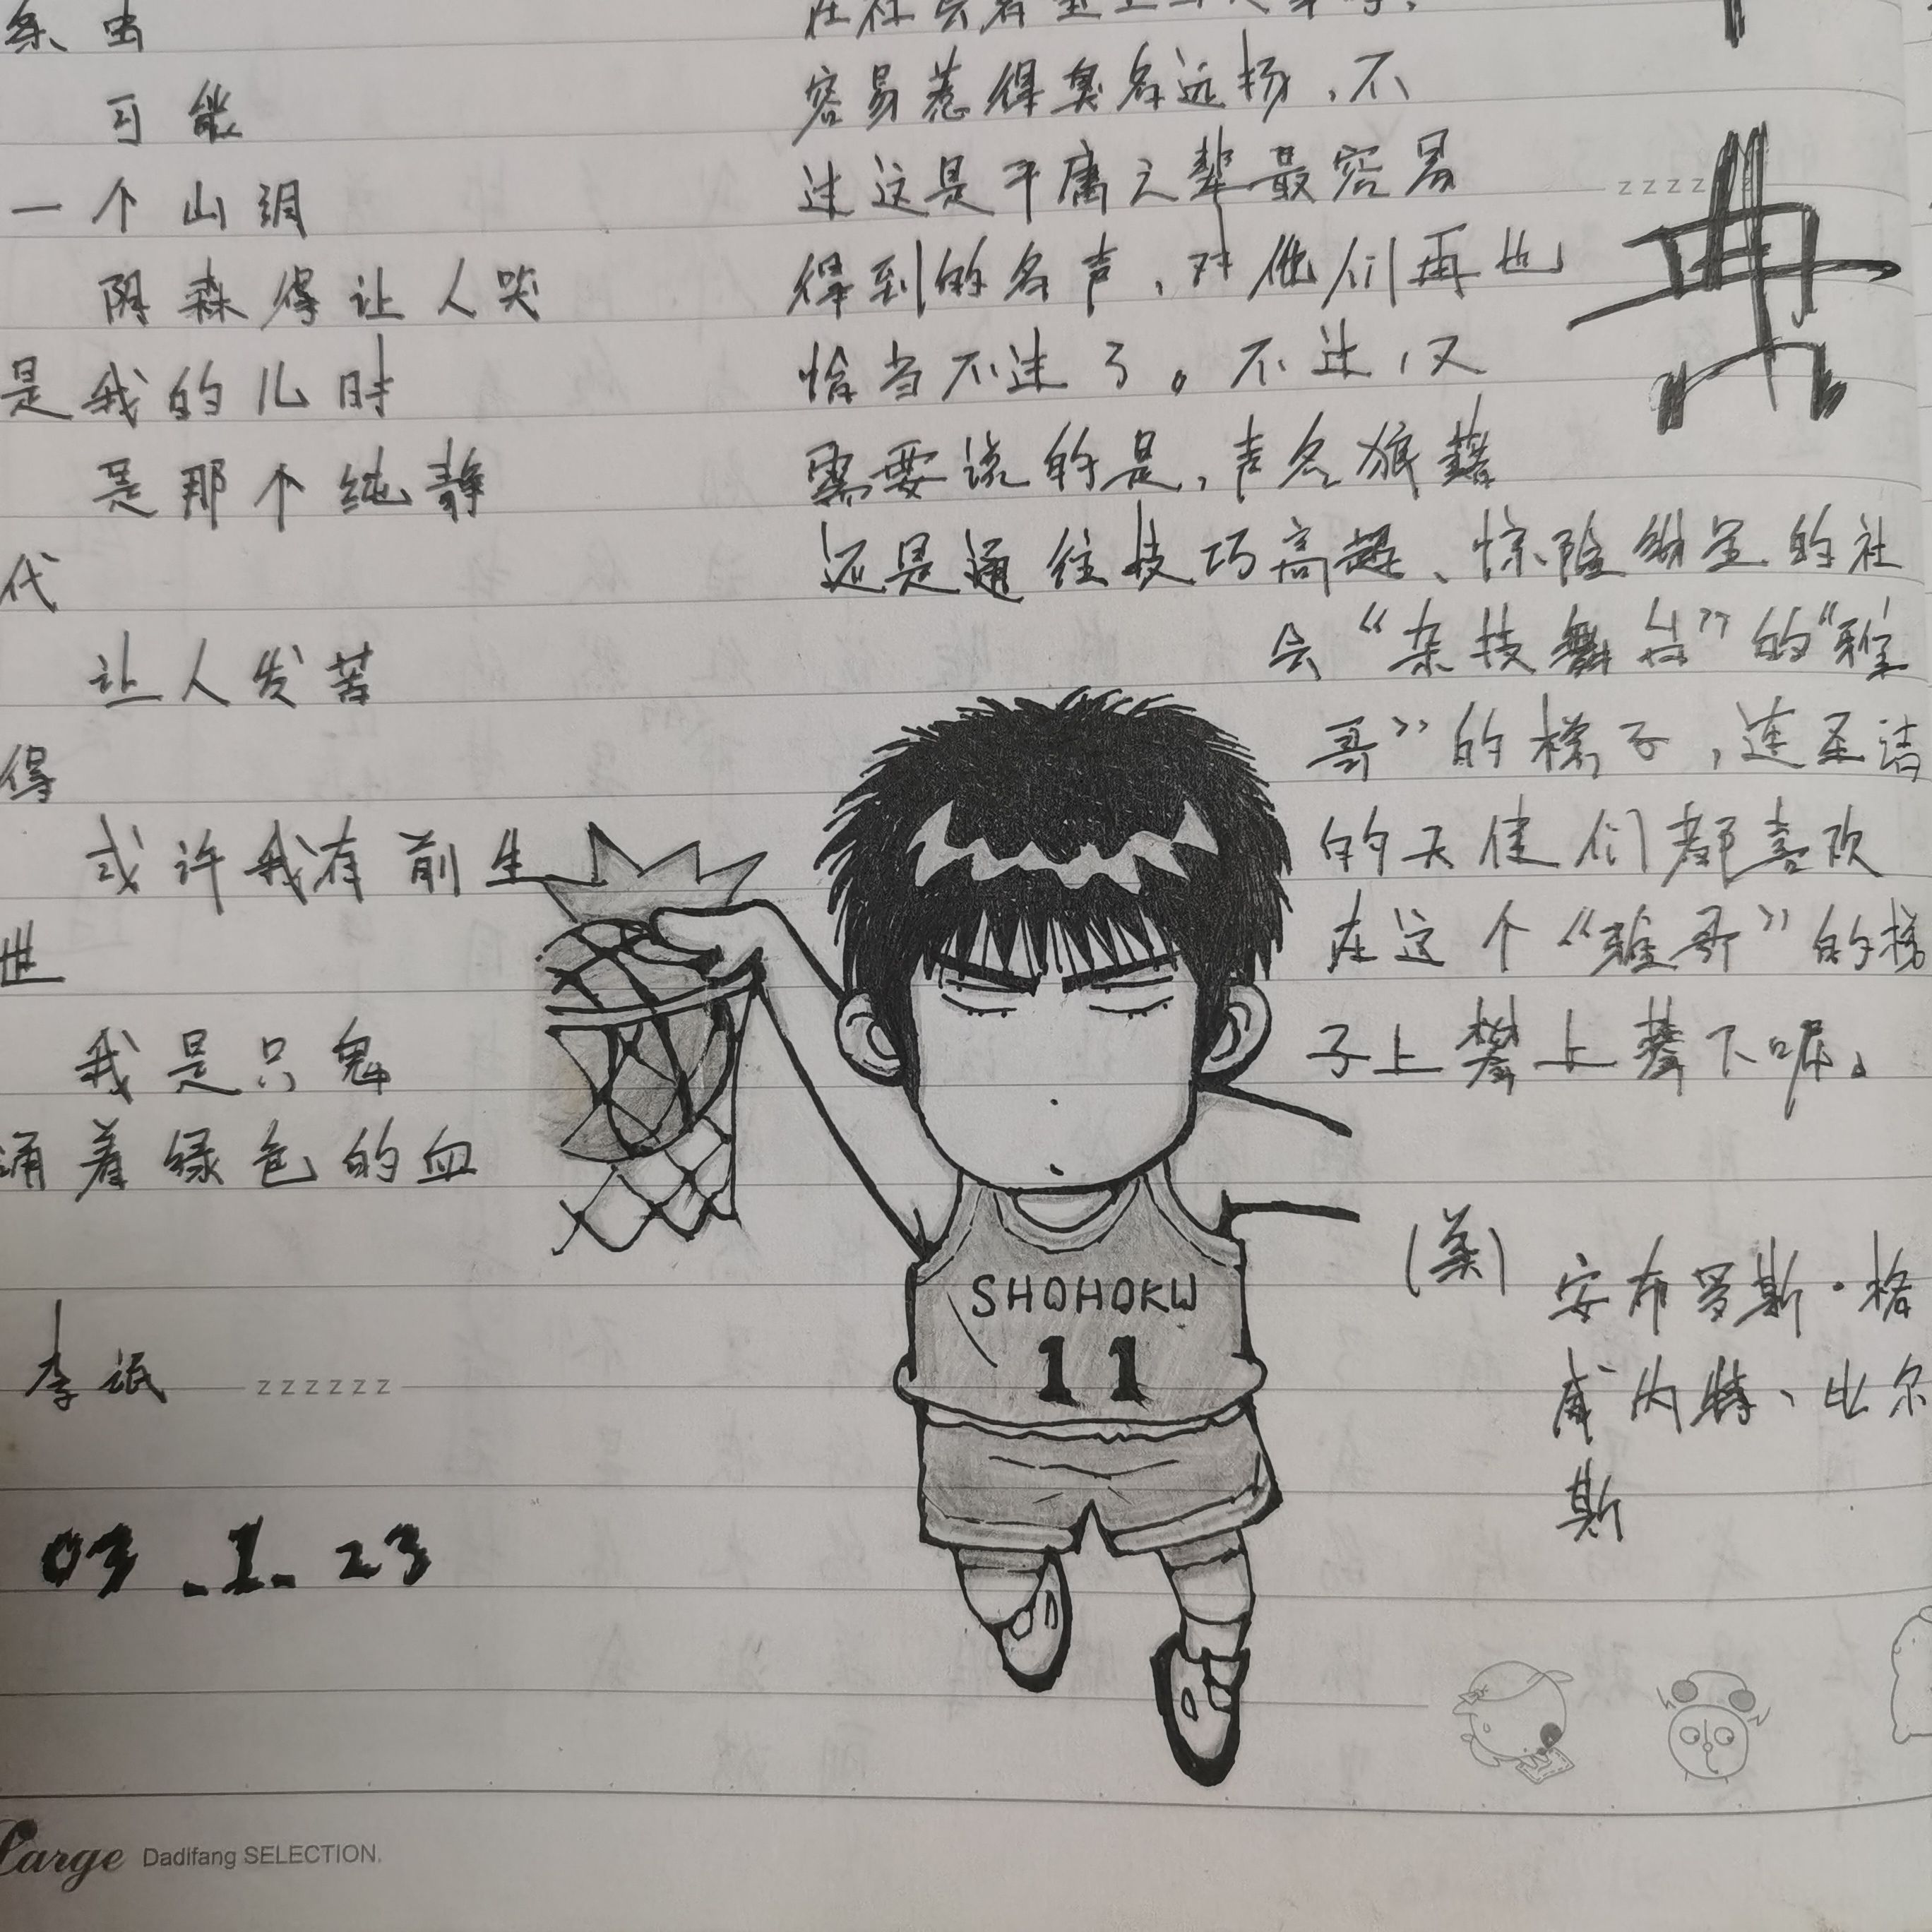 可能
一个山洞
阴森得让人哭
是我的儿时
是那个纯静
代
让人发苦
得
或许我有前生
世
我是只鬼
涌着绿色的血
李诋
zzzzzz
03.1.23
容易惹得臭名远扬,不
过这是平庸之辈最容易
得到的名声,对他们再也
恰当不过了。不过,又
需要说的是,声名狼藉
还是通往技巧高超、惊险纷呈的社
会“杂技舞台”的“雅
哥”的梯子,连圣洁
的天使们都喜欢
在这个“雅哥”的梯
子上攀上攀下呢。
(美)
安布罗斯·格
威内特、比尔
斯
zzzz
典
SHOHOKU
11
Large Dadifang SELECTION.